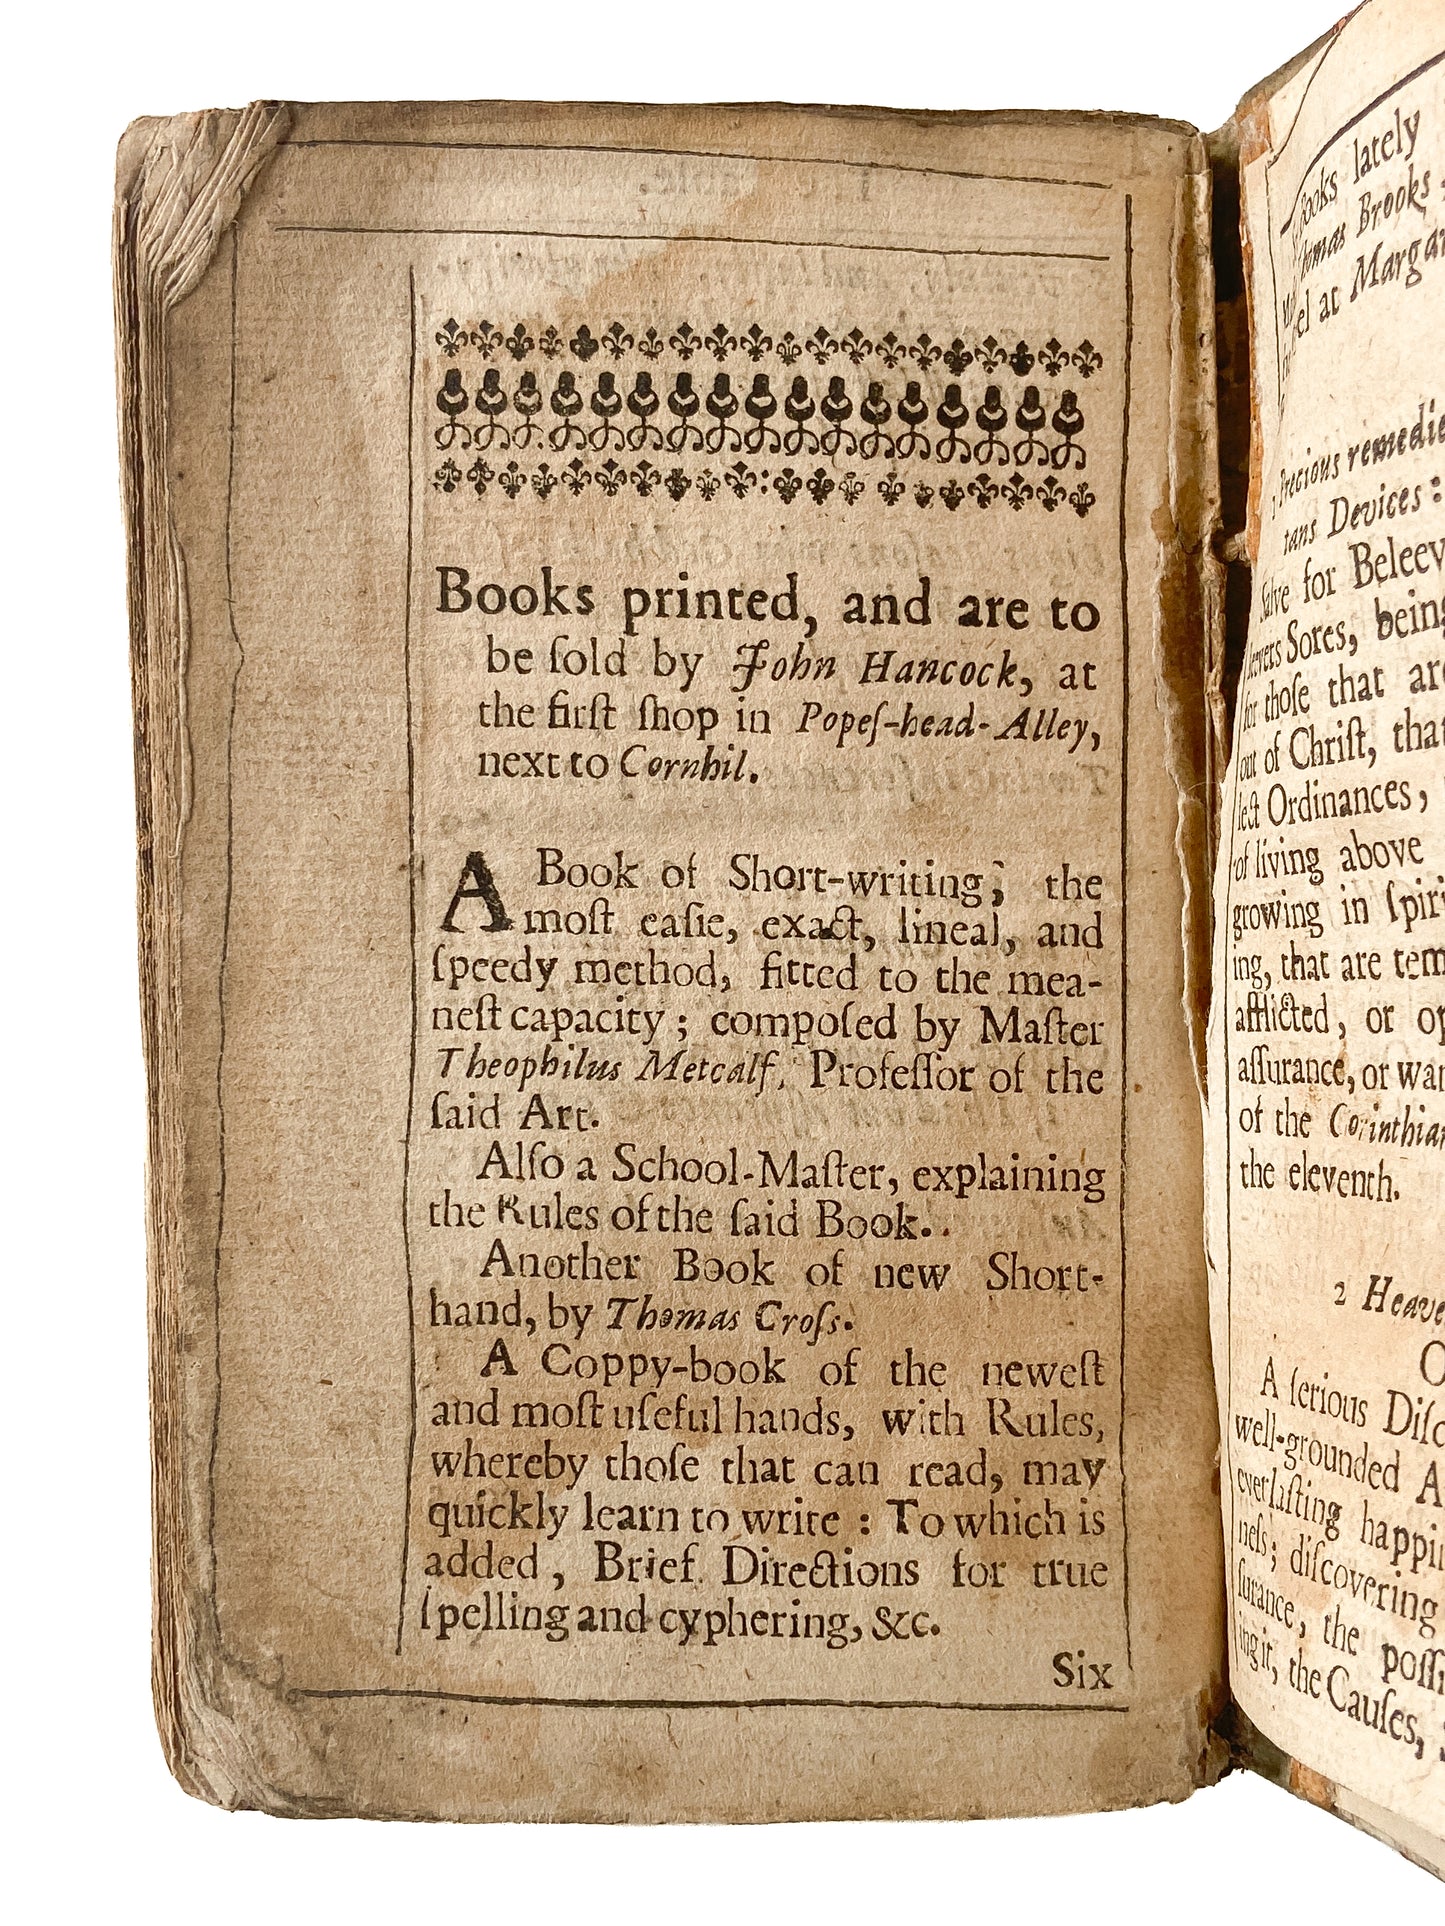 Books printed, and are to
be ſold by John Hancock, at
the firſt ſhop in Popeſ-head-Alley,
next to Cornhil.
A Book of Short-writing; the
moſt eaſie, exact, lineal, and
ſpeedy method, fitted to the mea-
neſt capacity; compoſed by Maſter
Theophilus Metcalf, Profeſſor of the
ſaid Art.
Alſo a School-Maſter, explaining
the Rules of the ſaid Book.
Another Book of new Short-
hand, by Thomas Croſs.
A Coppy-book of the neweſt
and moſt uſeful hands, with Rules,
whereby thoſe that can read, may
quickly learn to write: To which is
added, Brief Directions for true
ſpelling and cyphering, &c.
Six
Books lately
Thomas Brooks
at Margar
1 Precious remedie
tans Devices:
Salve for Beleev
leevers Sores, being
for thoſe that are
out of Chriſt, that
lect Ordinances,
of living above
growing in ſpiri
ing, that are tem
afflicted, or op
aſſurance, or wan
of the Corinthian
the eleventh.
2 Heave
O
A ſerious Diſc
well-grounded A
everlaſting happi
neſs; diſcovering
ſurance, the poſſi
ing it, the Cauſes,